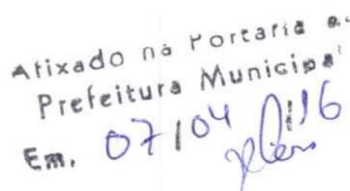 Afixado na Portaria da
Prefeitura Municipal
Em, 07/04/16